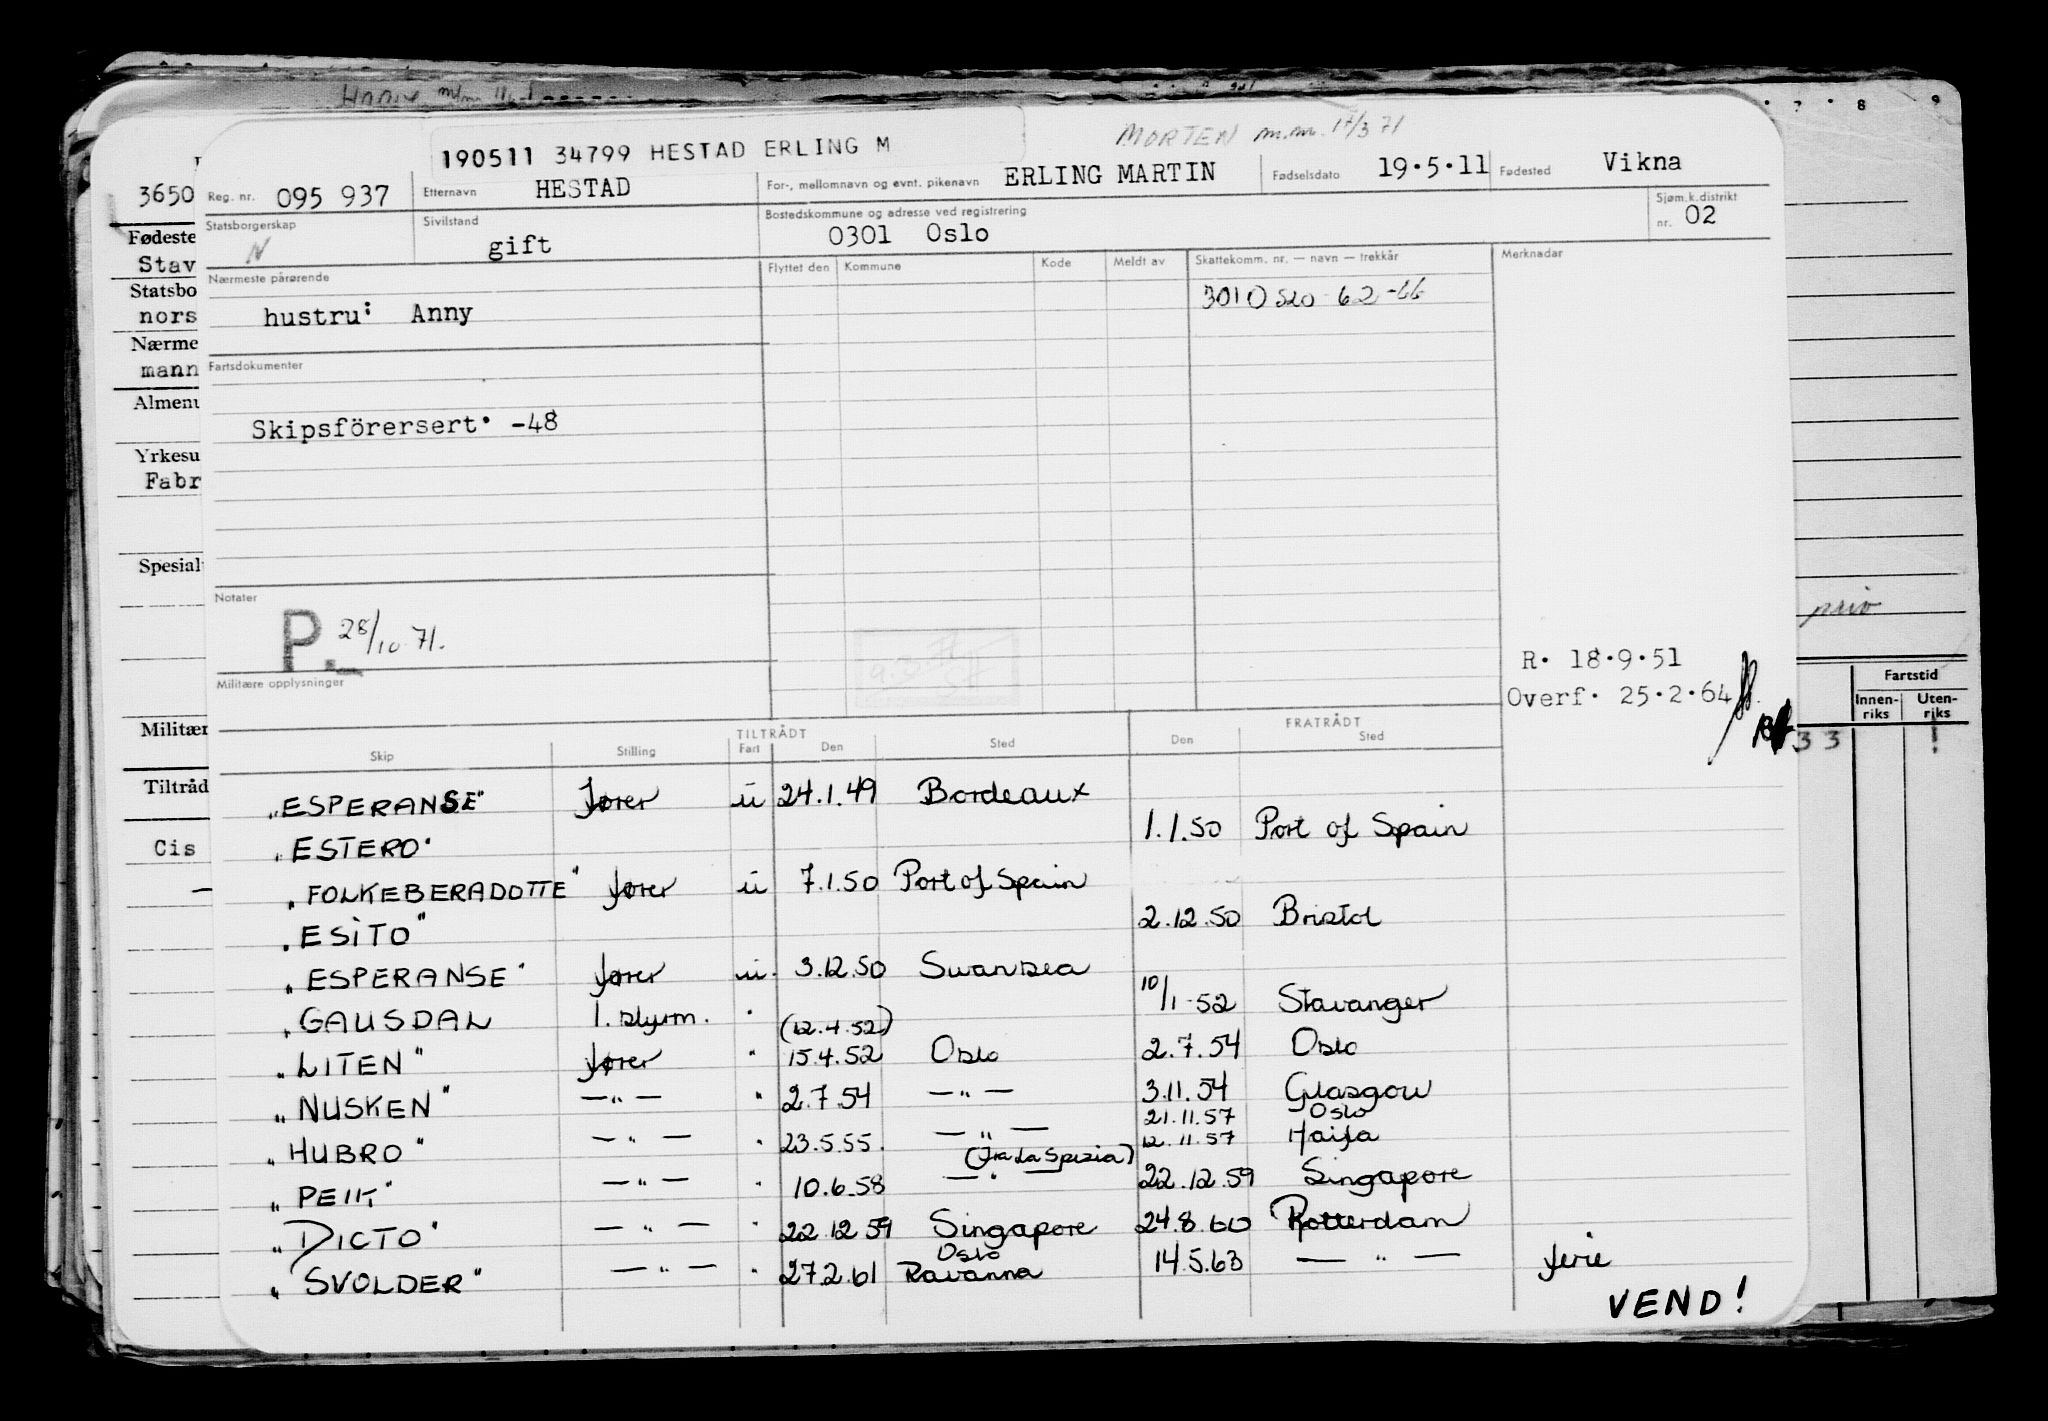 190511 34799 HESTAD ERLING M
MORTEN m.m. 17/3 71
3650
Reg. nr. 095 937 Etternavn HESTAD For-, mellomnavn og evnt. pikenavn ERLING MARTIN Fødselsdato 19.5.11 Fødested Vikna
Statsborgerskap N Sivilstand gift Bostedskommune og adresse ved registrering 0301 Oslo Sjøm.k.distrikt nr. 02
Nærmeste pårørende Flyttet den Kommune Kode Meldt av Skattekomm. nr. — navn — trekkår Merknadar
301 Oslo 62-66
hustru: Anny
Fartsdokumenter
Skipsförersert. -48
Notater
P. 28/10 71.
Militære opplysninger
R. 18.9.51
Overf. 25.2.64
TILTRÅDT FRATRÅDT
Skip Stilling Fart Den Sted Den Sted
"ESPERANSE" fører u 24.1.49 Bordeaux
"ESTERO" 1.1.50 Port of Spain
"FOLKEBERADOTTE" fører u 7.1.50 Port of Spain
"ESITO" 2.12.50 Bristol
"ESPERANSE" fører u. 3.12.50 Swansea
10/1-52 Stavanger
"GAUSDAL 1. styrm. " (12.4.52)
"LITEN" fører " 15.4.52 Oslo 2.7.54 Oslo
"NUSKEN" — " — " 2.7.54 — " — 3.11.54 Glasgow
21.11.57 Oslo
"HUBRO" — " — " 23.5.55. — " — 12.11.57 Haifa
(fra La Spezia)
"PEIK" — " — " 10.6.58 — " — 22.12.59 Singapore
"DICTO" — " — " 22.12.59 Singapore 24.8.60 Rotterdam
Oslo
"SVOLDER" — " — " 27.2.61 Ravanna 14.5.63 — " — ferie
VEND!
Fødeste
Stav
Statsbo
nors
Nærme
mann
Almenu
Yrkesu
Fabr
Spesial
Militær
Tiltråd
Cis
7 8 9
priv
Fartstid
Innen-riks Uten-riks
33